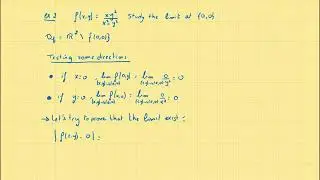 Ex 2 f(x,y) = xy²/x²+y² Study the limit at (0,0)
Df = ℝ² \ {(0,0)}
Testing some direction:
• if x=0 lim f(0,y) = lim 0/y² = 0
• if y=0 lim f(x,0) = lim 0/x² = 0
→ Let's try to prove that the limit exist:
| f(x,y) - 0 | =